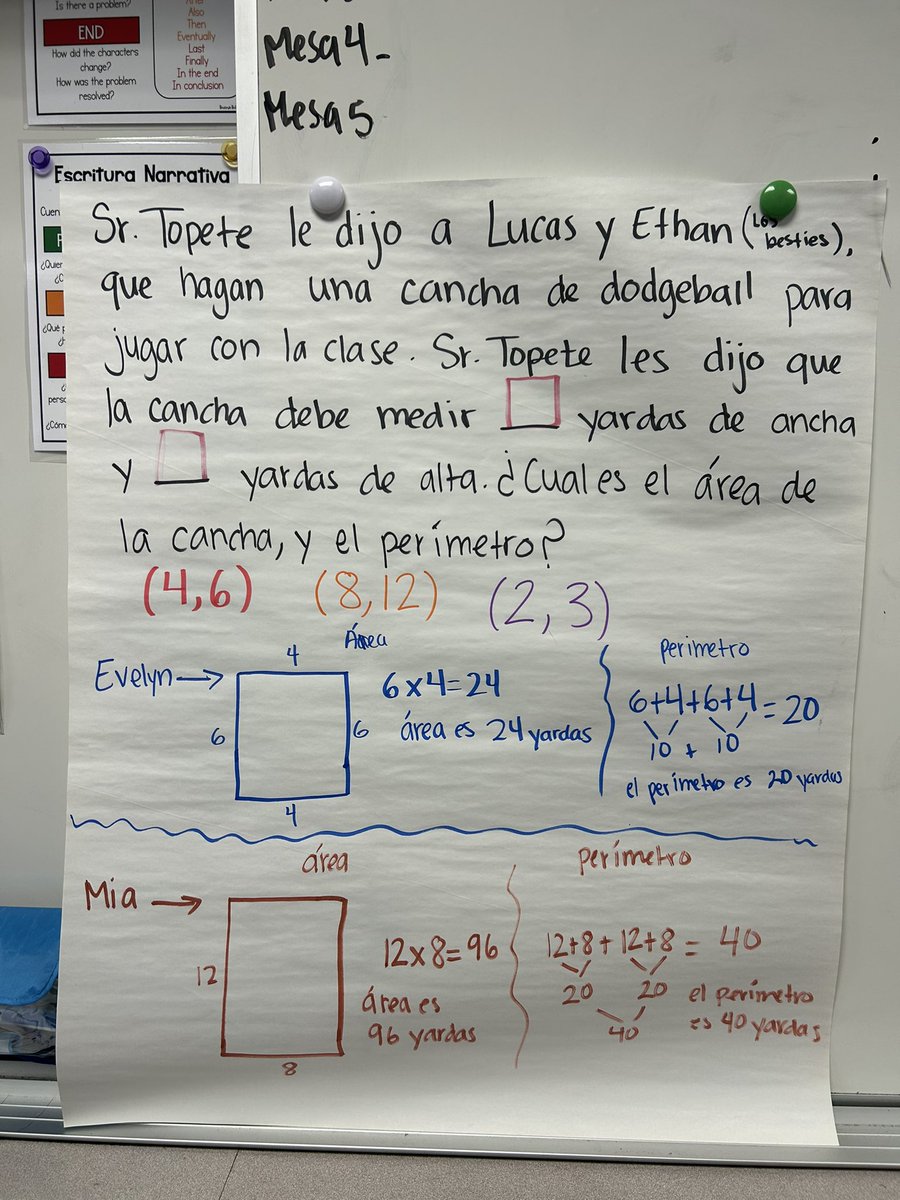 Is there a problem?
END
How did the characters
change?
How was the problem
resolved?
Also
Then
Eventually
Last
Finally
In the end
In conclusion
Mesa 4-
Mesa 5
Escritura Narrativa
Sr. Topete le dijo a Lucas y Ethan (Los besties),
que hagan una cancha de dodgeball para
jugar con la clase. Sr. Topete les dijo que
la cancha debe medir yardas de ancha
y yardas de alta. ¿Cual es el área de
la cancha, y el perímetro?
(4,6) (8,12) (2,3)
Área
perimetro
Evelyn→
4
6
6
4
6x4=24
área es 24 yardas
6+4+6+4=20
10 + 10
el perímetro es 20 yardas
área
perímetro
Mia →
12
8
12x8=96
área es
96 yardas
12+8+12+8= 40
20 20
40
el perímetro
es 40 yardas